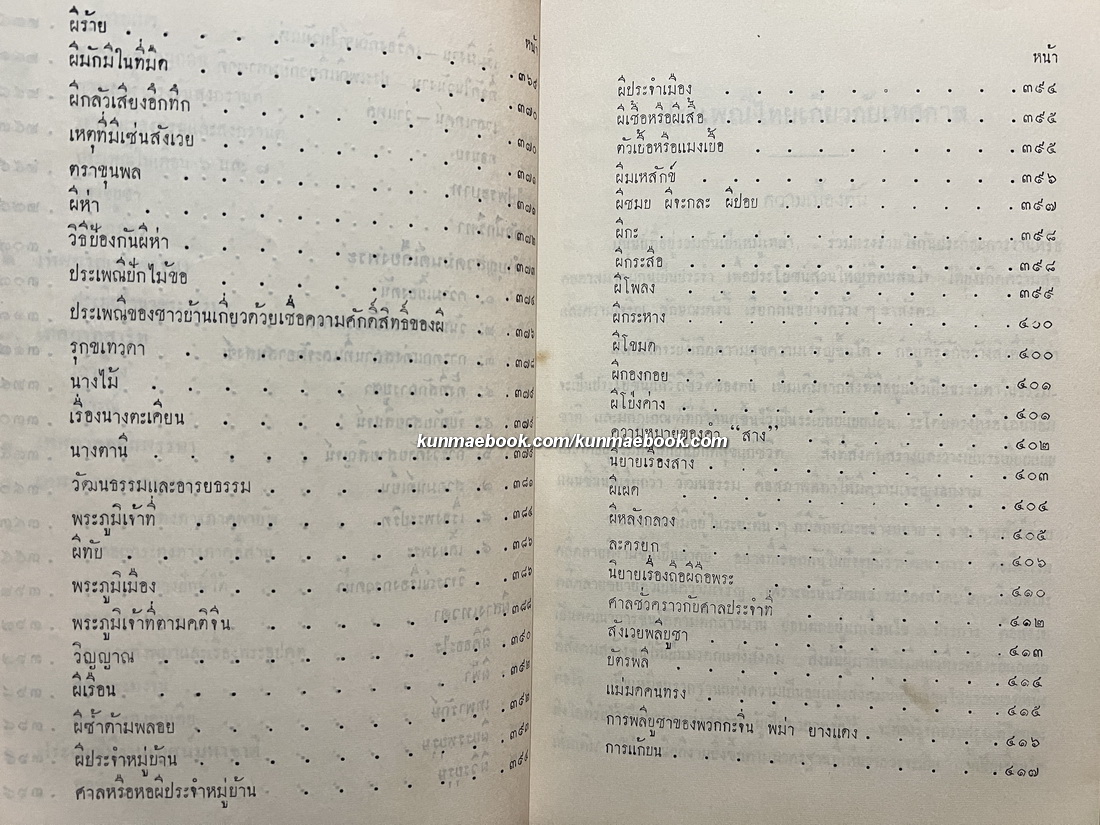 หน้า
ผีร้าย . . . . . . . . . . ๓๖๙
ผีมักมีในที่มืด . . . . . . . . . ๓๗๐
ผีกลัวเสียงอึกทึก . . . . . . . . ๓๗๐
เหตุที่มีเซ่นสังเวย . . . . . . . . ๓๗๑
ตราขุนพล . . . . . . . . . ๓๗๑
ผีห่า . . . . . . . . . . ๓๗๒
วิธีป้องกันผีห่า . . . . . . . . ๓๗๓
ประเพณีปักไม้ข่อ . . . . . . . . ๓๗๔
ประเพณีของชาวบ้านเกี่ยวด้วยเชื่อความศักดิ์สิทธิ์ของผี . ๓๗๖
รุกขเทวดา . . . . . . . . . ๓๗๘
นางไม้ . . . . . . . . . . ๓๗๙
เรื่องนางตะเคียน . . . . . . . . ๓๗๙
นางตานี . . . . . . . . . ๓๗๙
วัฒนธรรมและอารยธรรม . . . . . . ๓๘๑
พระภูมิเจ้าที่ . . . . . . . . ๓๘๔
ผีทับ . . . . . . . . . . ๓๘๖
พระภูมิเมือง . . . . . . . . ๓๘๖
พระภูมิเจ้าที่ตามคติจีน . . . . . . . ๓๘๘
วิญญาณ . . . . . . . . . ๓๙๐
ผีเรือน . . . . . . . . . ๓๙๒
ผีซ้ำด้ำพลอย . . . . . . . . ๓๙๒
ผีประจำหมู่บ้าน . . . . . . . . ๓๙๓
ศาลหรือหอผีประจำหมู่บ้าน . . . . . . ๓๙๔
หน้า
ผีประจำเมือง . . . . . . . . . ๓๙๔
ผีเชื้อหรือผีเสื้อ . . . . . . . . . ๓๙๕
ตัวเยื้อหรือแมงเยื้อ . . . . . . . . ๓๙๕
ผีมเหสักข์ . . . . . . . . . ๓๙๖
ผีชมบ ผีจะกละ ผีปอบ . . . . . . . ๓๙๗
ผีกะ . . . . . . . . . . ๓๙๘
ผีกระสือ . . . . . . . . . ๓๙๘
ผีโพลง . . . . . . . . . ๓๙๙
ผีกระหาง . . . . . . . . . ๔๐๐
ผีโขมด . . . . . . . . . ๔๐๐
ผีกองกอย . . . . . . . . . ๔๐๑
ผีโป่งค่าง . . . . . . . . . ๔๐๑
ความหมายของคำ “สาง” . . . . . . . ๔๐๒
นิยายเรื่องสาง . . . . . . . . ๔๐๓
ผีเผด . . . . . . . . . ๔๐๔
ผีหลังกลวง . . . . . . . . . ๔๐๕
ละครยก . . . . . . . . . ๔๐๖
นิยายเรื่องถือผีถือพระ . . . . . . . ๔๑๐
ศาลชั่วคราวกับศาลประจำที่ . . . . . . ๔๑๒
สังเวยพลีบูชา . . . . . . . . ๔๑๓
บัตรพลี . . . . . . . . . ๔๑๔
แม่มดคนทรง . . . . . . . . ๔๑๕
การพลีบูชาของพวกกะจิน พม่า ยางแดง . . . . ๔๑๖
การแก้บน . . . . . . . . . ๔๑๗
kunmaebook.com/kunmaebook.com